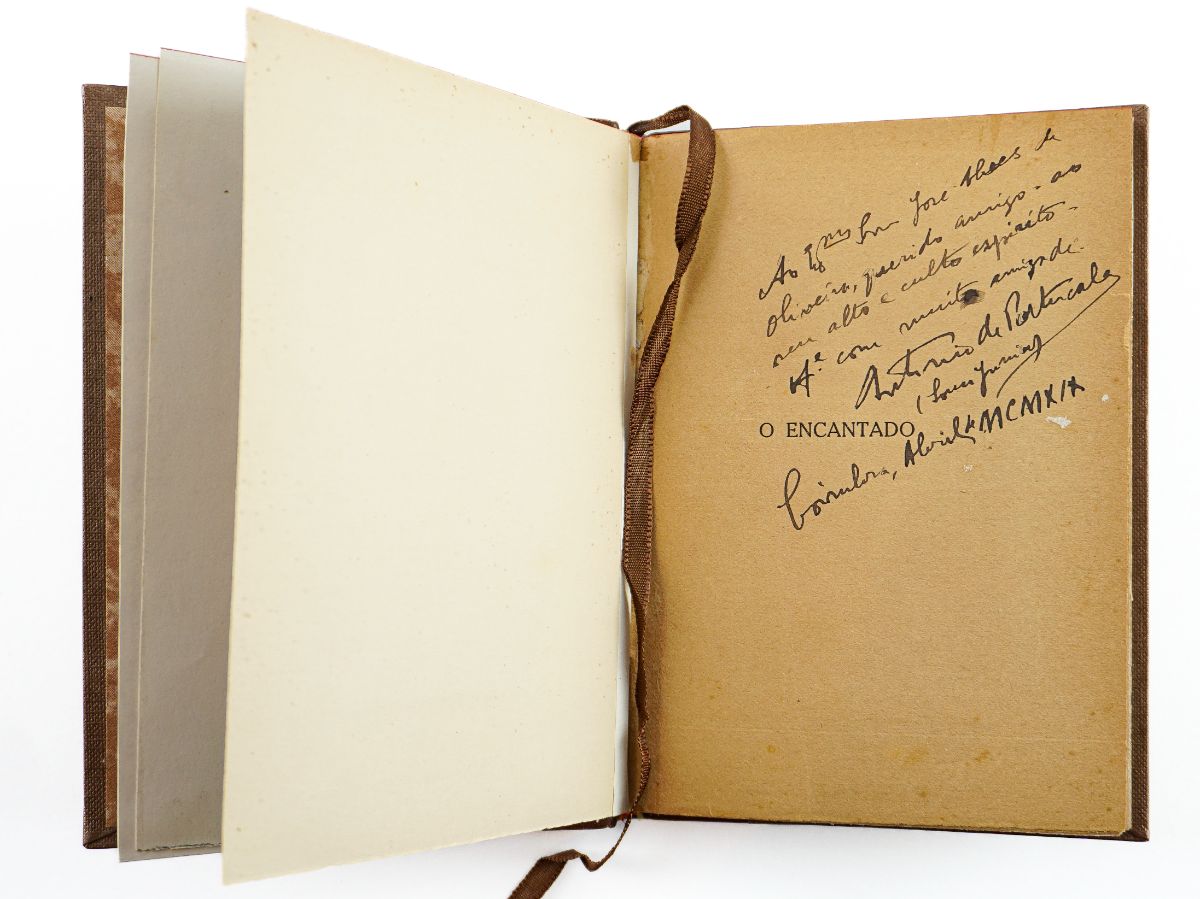 Ao Exmo Snr José Alves de
Oliveira, querido amigo - ao
seu alto e culto espirito -
Of.e com muita amizade.
Antonio de Portucale
O ENCANTADO
Coimbra, Abril de MCMXIX